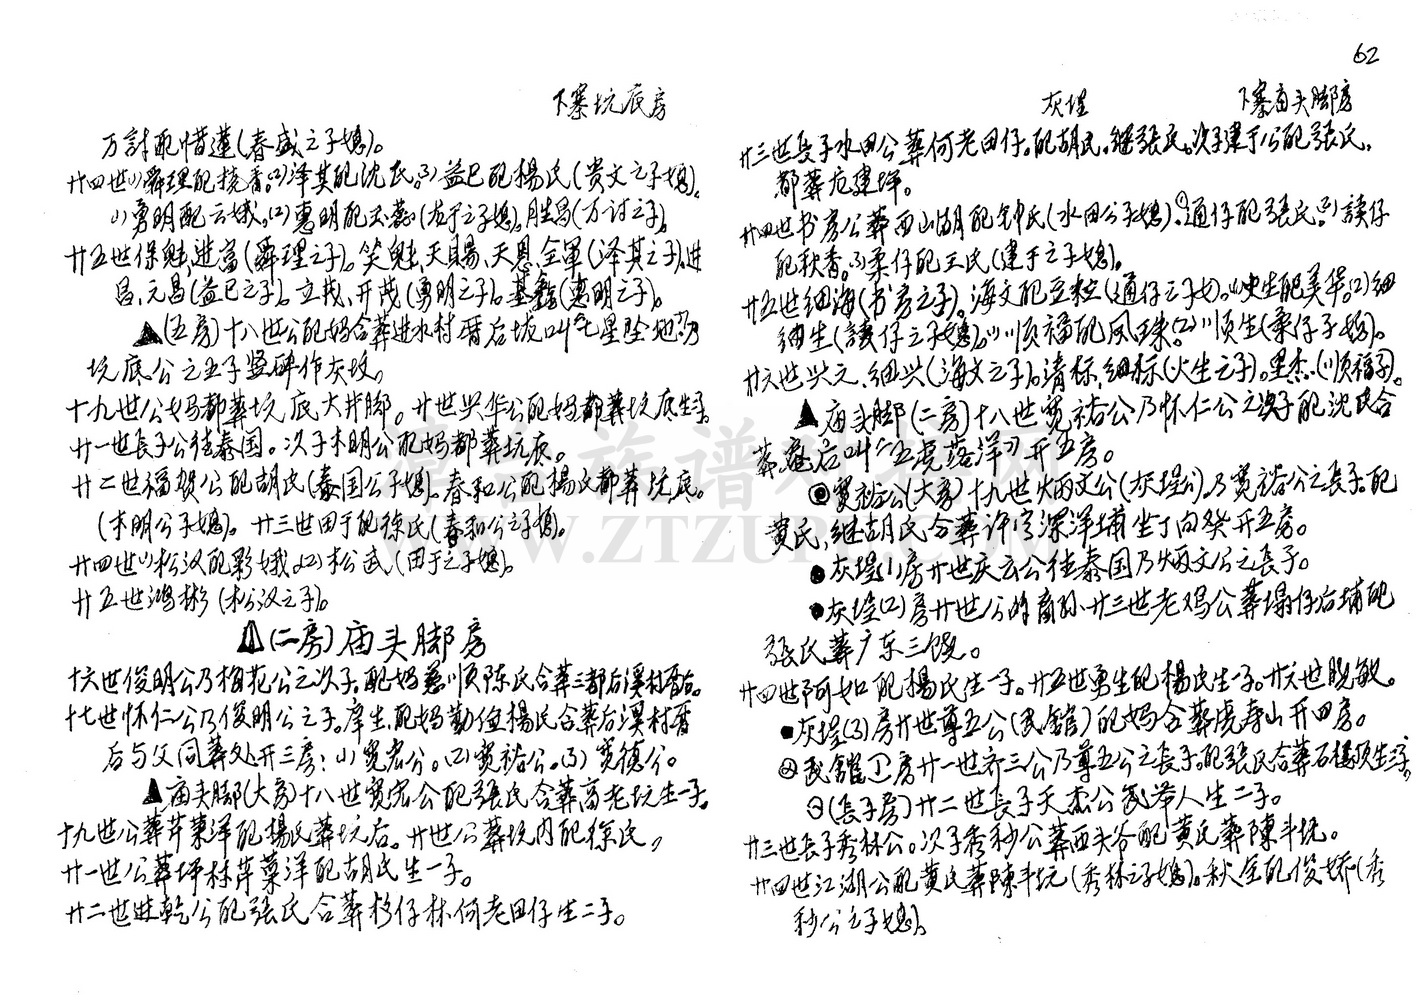 62
下寨坑底房
万討配惜蓮(春盛之子媳)。
廿四世(1)舜理配挠香。(2)泽其配沈氏。(3)益巳配楊氏(贵文之子媳)。
(1)勇明配云娥。(2)惠明配(龙于之子媳)。胜昌(万讨之子)。
廿五世保魁、进富(舜理之子)。笑魁、天賜、天恩、全軍(泽其之子)。进
昌、元昌(益巳之子)。立茂、开茂(勇明之子)。基(惠明之子)。
▲(五房)十八世公配妈合葬进水村厝后坡叫“七星坠地”乃
坑底公之五子竖碑作灰坟。
十九世公妈都葬坑底大井脚。廿世兴华公配妈都葬坑底生二子。
廿一世長子公往泰国。次子木明公配妈都葬坑底。
廿二世福贺公配胡氏(泰国公子媳)。春和公配楊氏都葬坑底。
(木明公子媳)。廿三世田于配徐氏(春和公之子媳)。
廿四世(1)松汉配彩娥。(2)松武(田于之子媳)。
廿五世鸿彬(松汉之子)。
▲(二房)庙头脚房
十六世俊明公乃梅花公之次子。配妈慈順陈氏合葬三都后溪村厝后。
十七世怀仁公乃俊明公之子。庠生、配妈勤俭楊氏合葬后溪村厝
后与父同葬处开三房:(1)宽宏公。(2)宽裕公。(3)宽德公。
▲庙头脚(大房)十八世宽宏公配張氏合葬高老坑生一子。
十九世公葬芹菜洋配楊氏葬坑后。廿世公葬坑内配徐氏。
廿一世公葬坪林芹菓洋配胡氏生一子。
廿二世进乾公配張氏合葬杉仔林何老田仔生二子。
灰埕 下寨庙头脚房
廿三世長子水田公葬何老田仔。配胡氏。继張氏。次子建于公配張氏。
都葬后建坪。
廿四世书房公葬西山湖配钟氏(水田公子媳)。(1)通仔配張氏。(2)讀仔
配秋香。(3)柔仔配王氏(建于之子媳)。
廿五世細海(书房之子)。海文配豆粒(通仔之子媳)。(1)火生配美华。(2)細
生(讀仔之子媳)。(1)順福配凤珠。(2)順生(柔仔子媳)。
廿六世兴元、細兴(海文之子)。清标、細标(火生之子)。里杰(順福子)。
▲庙头脚(二房)十八世宽裕公乃怀仁公之次子配沈氏合
葬庵后叫“五虎落洋”开五房。
◎宽裕公(大房)十九世炳文公(灰埕公)。乃宽裕公之長子。配
黄氏、继胡氏合葬许宁深洋埔坐丁向癸开五房。
●灰埕(1)房廿世庆云公往泰国乃炳文公之長子。
●灰埕(2)房廿世公的裔孙廿三世老鸡公葬塌仔后埔配
張氏葬广东三饶。
廿四世阿如配楊氏生一子。廿五世勇生配楊氏生一子。廿六世脱敏。
●灰埕(3)房廿世尊五公(武館)配妈合葬虎寿山开四房。
武館(1)房廿一世齐三公乃尊五公之長子。配張氏合葬石楼顶生二子。
(長子房)廿二世長子天杰公武举人生二子。
廿三世長子秀林公。次子秀秒公葬西头爷配黄氏葬陳斗坑。
廿四世江湖公配黄氏葬陳斗坑(秀林之子媳)。秋全配俊娇(秀
秒公之子媳)。